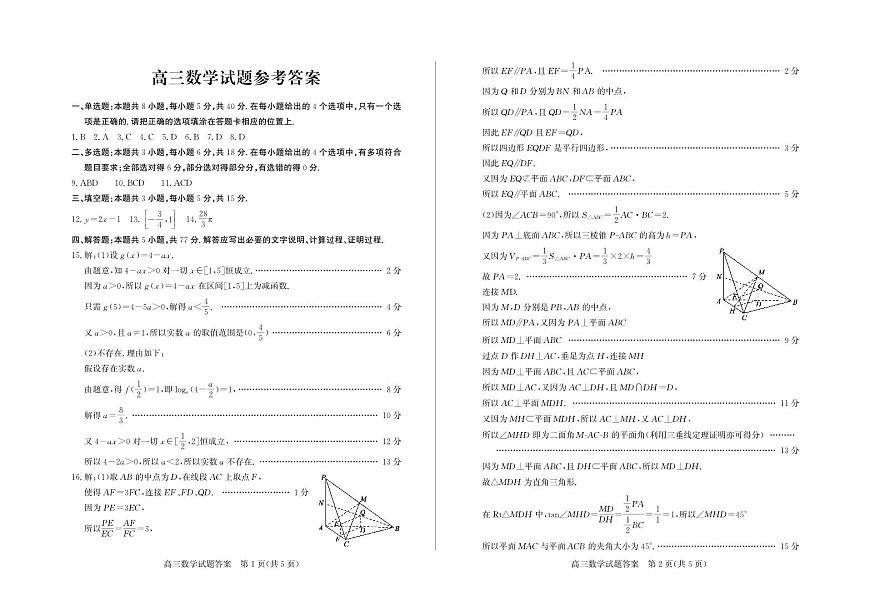 高三数学试题参考答案
一、单选题:本题共8小题,每小题5分,共40分.在每小题给出的4个选项中,只有一个选
项是正确的.请把正确的选项填涂在答题卡相应的位置上.
1.B 2.A 3.C 4.C 5.D 6.B 7.D 8.D
二、多选题:本题共3小题,每小题6分,共18分.在每小题给出的4个选项中,有多项符合
题目要求;全部选对得6分,部分选对得部分分,有选错的得0分.
9.ABD 10.BCD 11.ACD
三、填空题:本题共3小题,每小题5分,共15分.
12.y=2x-1 13.[-3/4,1] 14.28/3π
四、解答题:本题共5小题,共77分.解答应写出必要的文字说明、计算过程、证明过程.
15.解:(1)设g(x)=4-ax.
由题意,知4-ax>0对一切x∈[1,5]恒成立,…………2分
因为a>0,所以g(x)=4-ax在区间[1,5]上为减函数.
只需g(5)=4-5a>0,解得a<4/5. …………4分
又a>0,且a≠1,所以实数a的取值范围是(0,4/5) …………6分
(2)不存在.理由如下:
假设存在实数a.
由题意,得f(1/2)=1,即log_a(4-a/2)=1,…………8分
解得a=8/3. …………10分
又4-ax>0对一切x∈[1/2,2]恒成立,…………12分
所以4-2a>0,所以a<2,所以实数a不存在.…………13分
16.解:(1)取AB的中点为D,在线段AC上取点F,
使得AF=3FC,连接EF、FD、QD. …………1分
因为PE=3EC,
所以PE/EC=AF/FC=3,
P
N
M
Q
A
E
D
B
F
C
高三数学试题答案 第1页(共5页)
所以EF∥PA,且EF=1/4PA. …………2分
因为Q和D分别为BN和AB的中点,
所以QD∥PA,且QD=1/2NA=1/4PA
因此EF∥QD且EF=QD,
所以四边形EQDF是平行四边形,…………3分
因此EQ∥DF.
又因为EQ⊄平面ABC,DF⊂平面ABC,
所以EQ∥平面ABC. …………5分
(2)因为∠ACB=90°,所以S△ABC=1/2AC·BC=2.
因为PA⊥底面ABC,所以三棱锥P-ABC的高为h=PA,
又因为V_P-ABC=1/3S△ABC·PA=1/3×2×h=4/3
故PA=2. …………7分
连接MD.
因为M,D分别是PB,AB的中点,
所以MD∥PA,又因为PA⊥平面ABC
所以MD⊥平面ABC …………9分
过点D作DH⊥AC,垂足为点H,连接MH
因为MD⊥平面ABC,且AC⊂平面ABC,
所以MD⊥AC,又因为AC⊥DH,且MD∩DH=D,
所以AC⊥平面MDH. …………11分
又因为MH⊂平面MDH,所以AC⊥MH,又AC⊥DH,
所以∠MHD即为二面角M-AC-B的平面角(利用三垂线定理证明亦可得分) ………
…………13分
因为MD⊥平面ABC,且DH⊂平面ABC,所以MD⊥DH.
故△MDH为直角三角形.
在Rt△MDH中,tan∠MHD=MD/DH=(1/2PA)/(1/2BC)=1/1=1,所以∠MHD=45°
所以平面MAC与平面ACB的夹角大小为45°.…………15分
P
N
M
Q
A
E
D
B
H
C
高三数学试题答案 第2页(共5页)